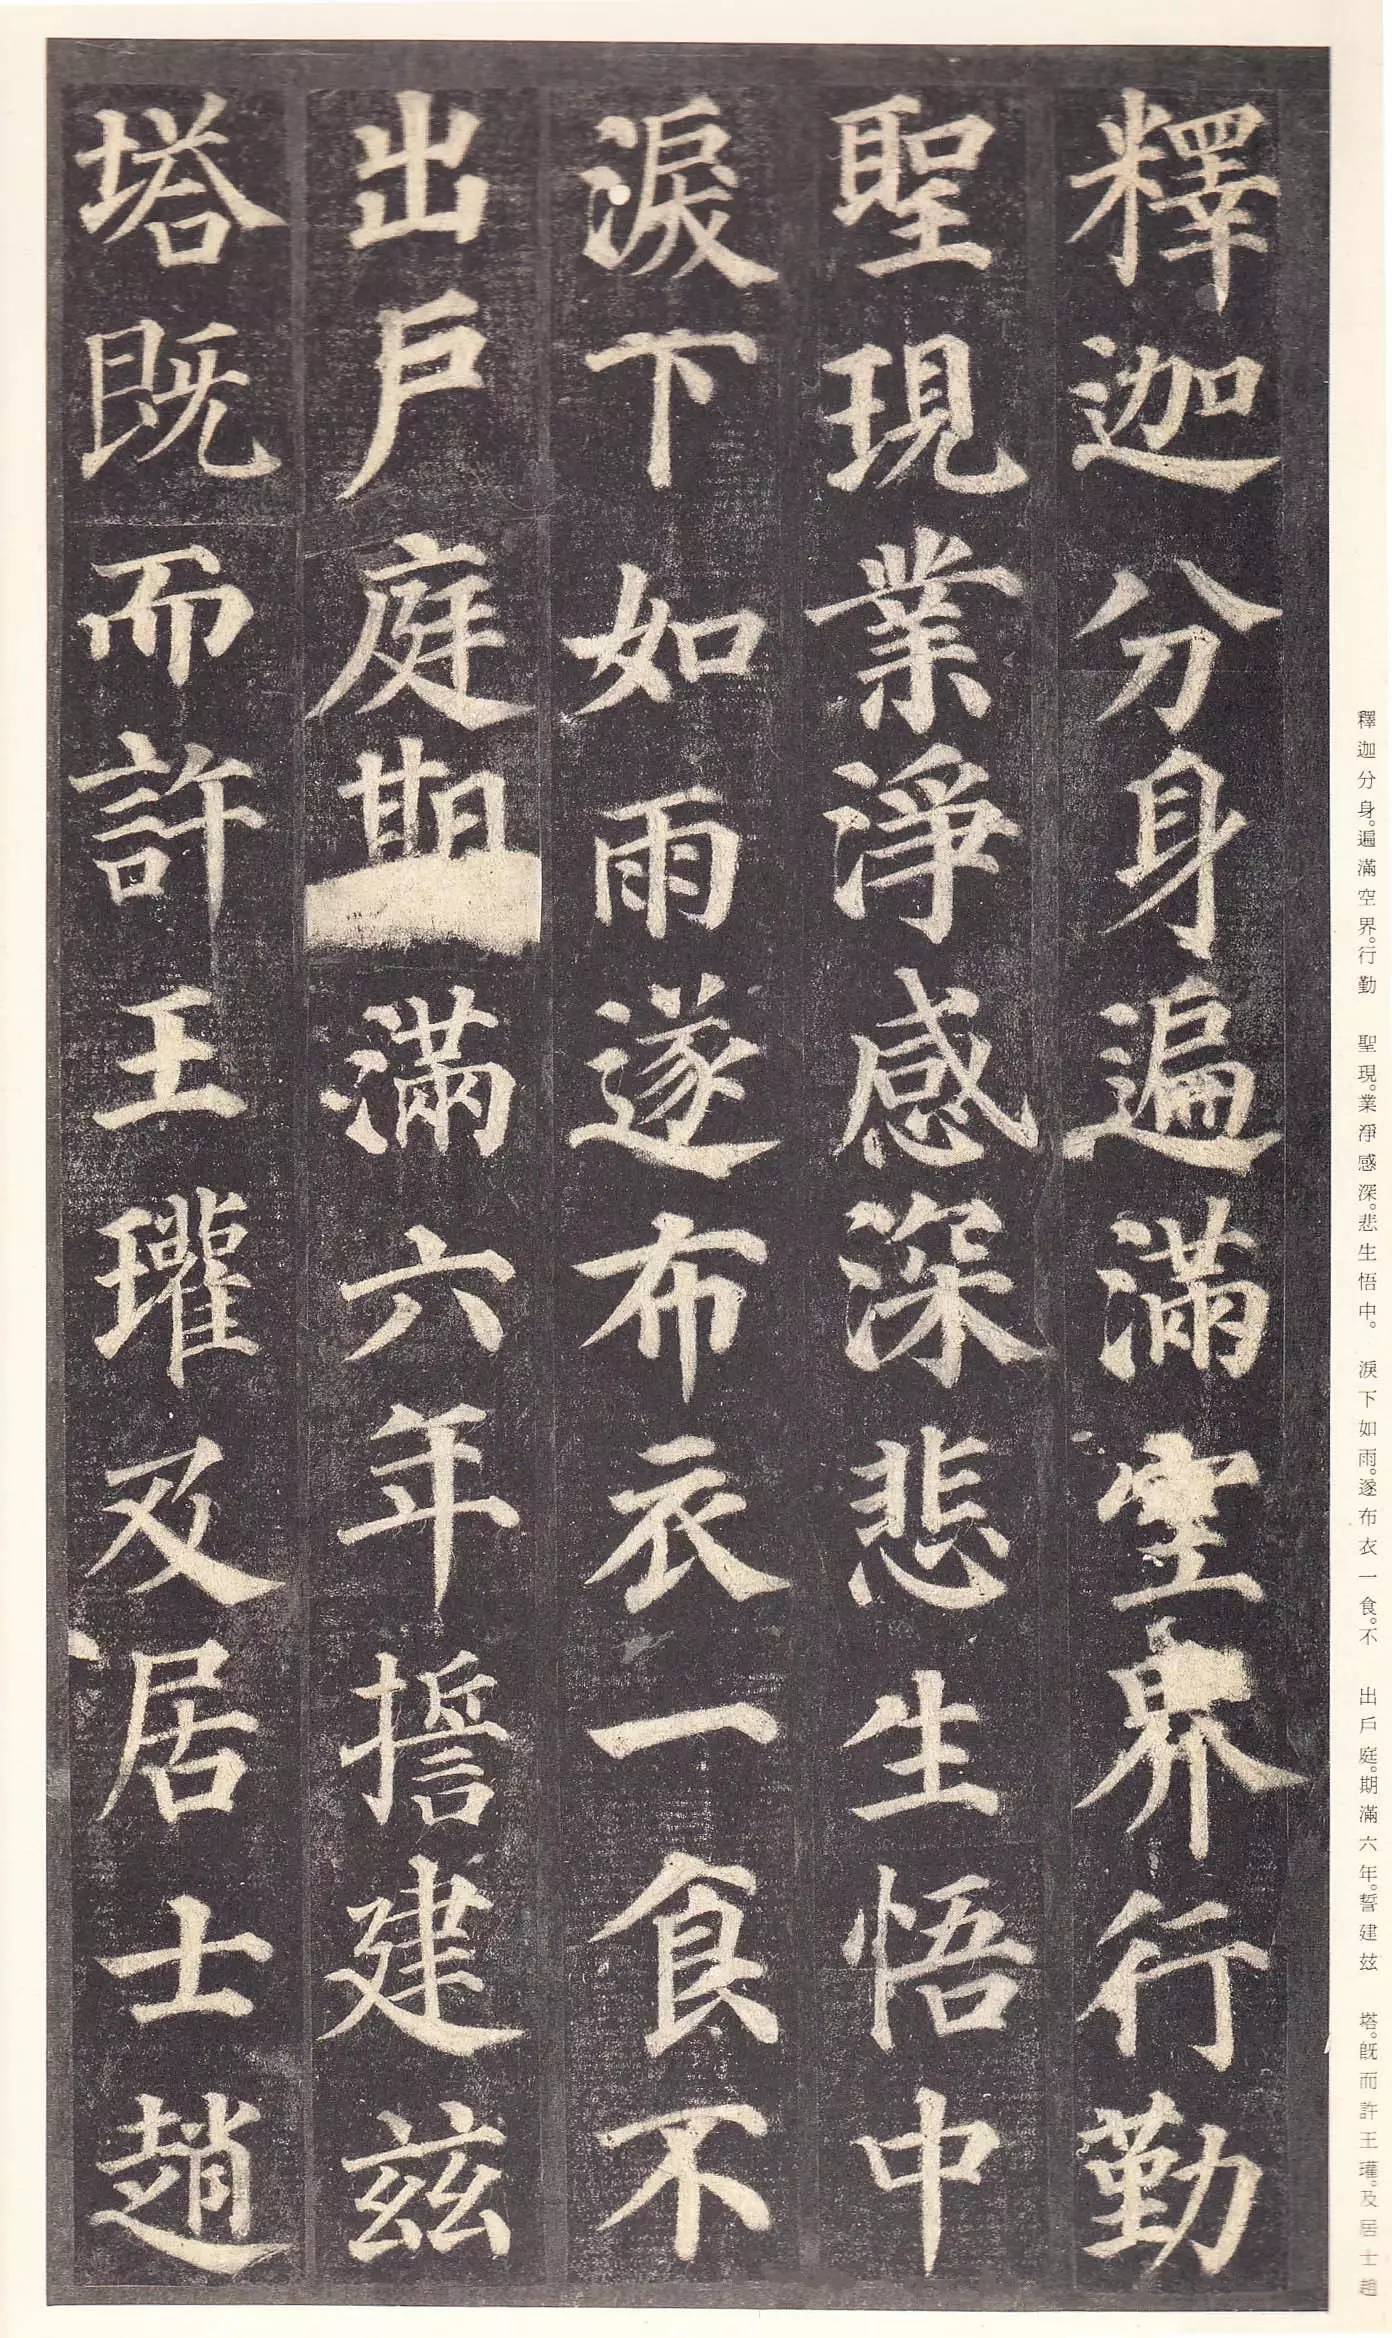 釋迦分身遍滿空界行勤
聖現業淨感深悲生悟中
淚下如雨遂布衣一食不
出戶庭期滿六年誓建茲
塔既而許王瓘及居士趙
釋迦分身。遍滿空界。行勤　聖現。業淨感深。悲生悟中。　淚下如雨。遂布衣一食。不　出戶庭。期滿六年。誓建茲　塔。既而許王瓘。及居士趙